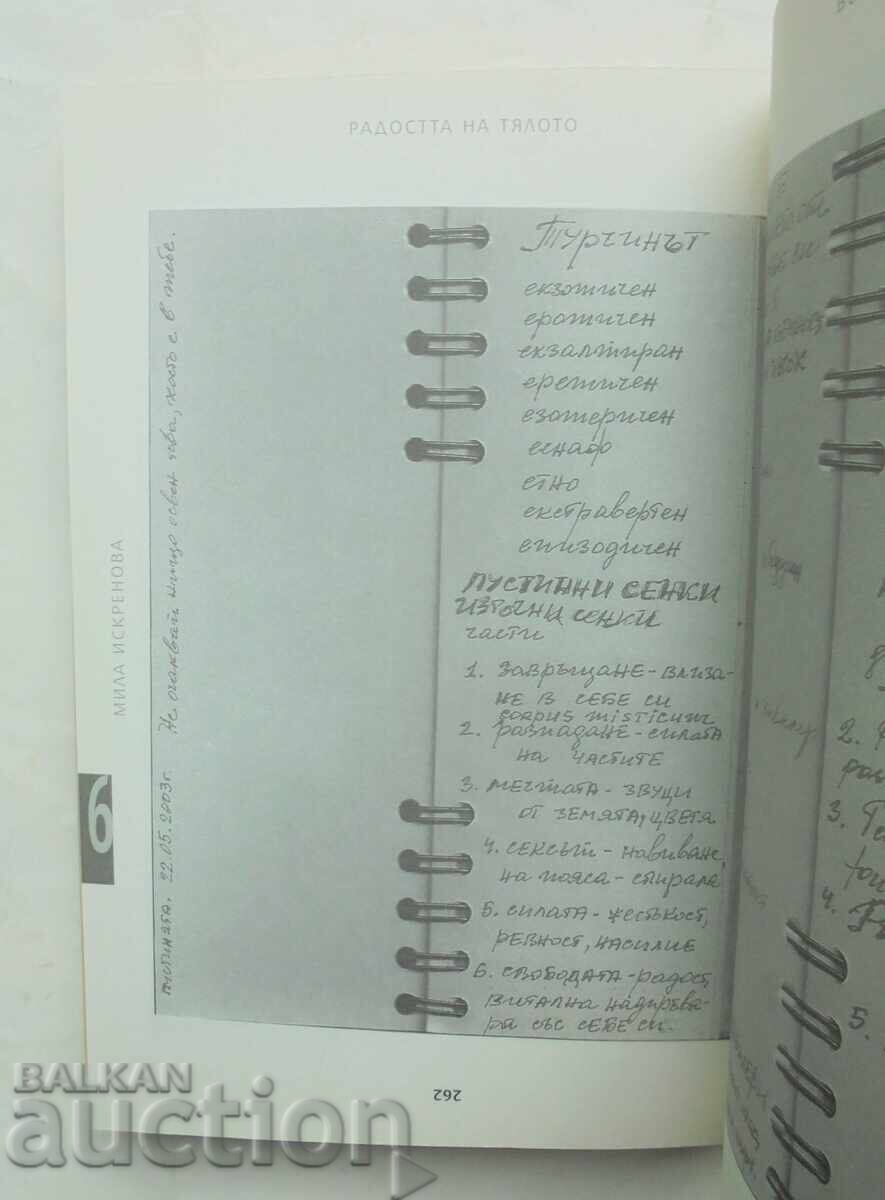 РАДОСТТА НА ТЯЛОТО
МИЛА ИСКРЕНОВА
6
пустинята. 22.05.2003г. Не очаквай нищо освен това, което е в тебе.
Турчинът
екзотичен
еротичен
екзалтиран
еретичен
езотеричен
еснаф
етно
екстравертен
епизодичен
ПУСТИННИ СЕНКИ
ИЗТОЧНИ СЕНКИ
части
1. ЗАВРЪЩАНЕ - ВЛИЗА-
НЕ В СЕБЕ СИ
corpus misticum
2. РАЗПАДАНЕ - СИЛАТА
НА ЧАСТИТЕ
3. МЕЧТАТА - ЗВУЦИ
ОТ ЗЕМЯТА, ЦВЕТЯ
4. СЕКСЪТ - навиване
на пояса - спирала
5. СИЛАТА - ЖЕСТЪКОСТ,
РЕВНОСТ, НАСИЛИЕ
6. СВОБОДАТА - радост,
ВИТАЛНА надпрева-
ра със СЕБЕ СИ.
262
2.
3.
4.
5.
BALKAN
auction